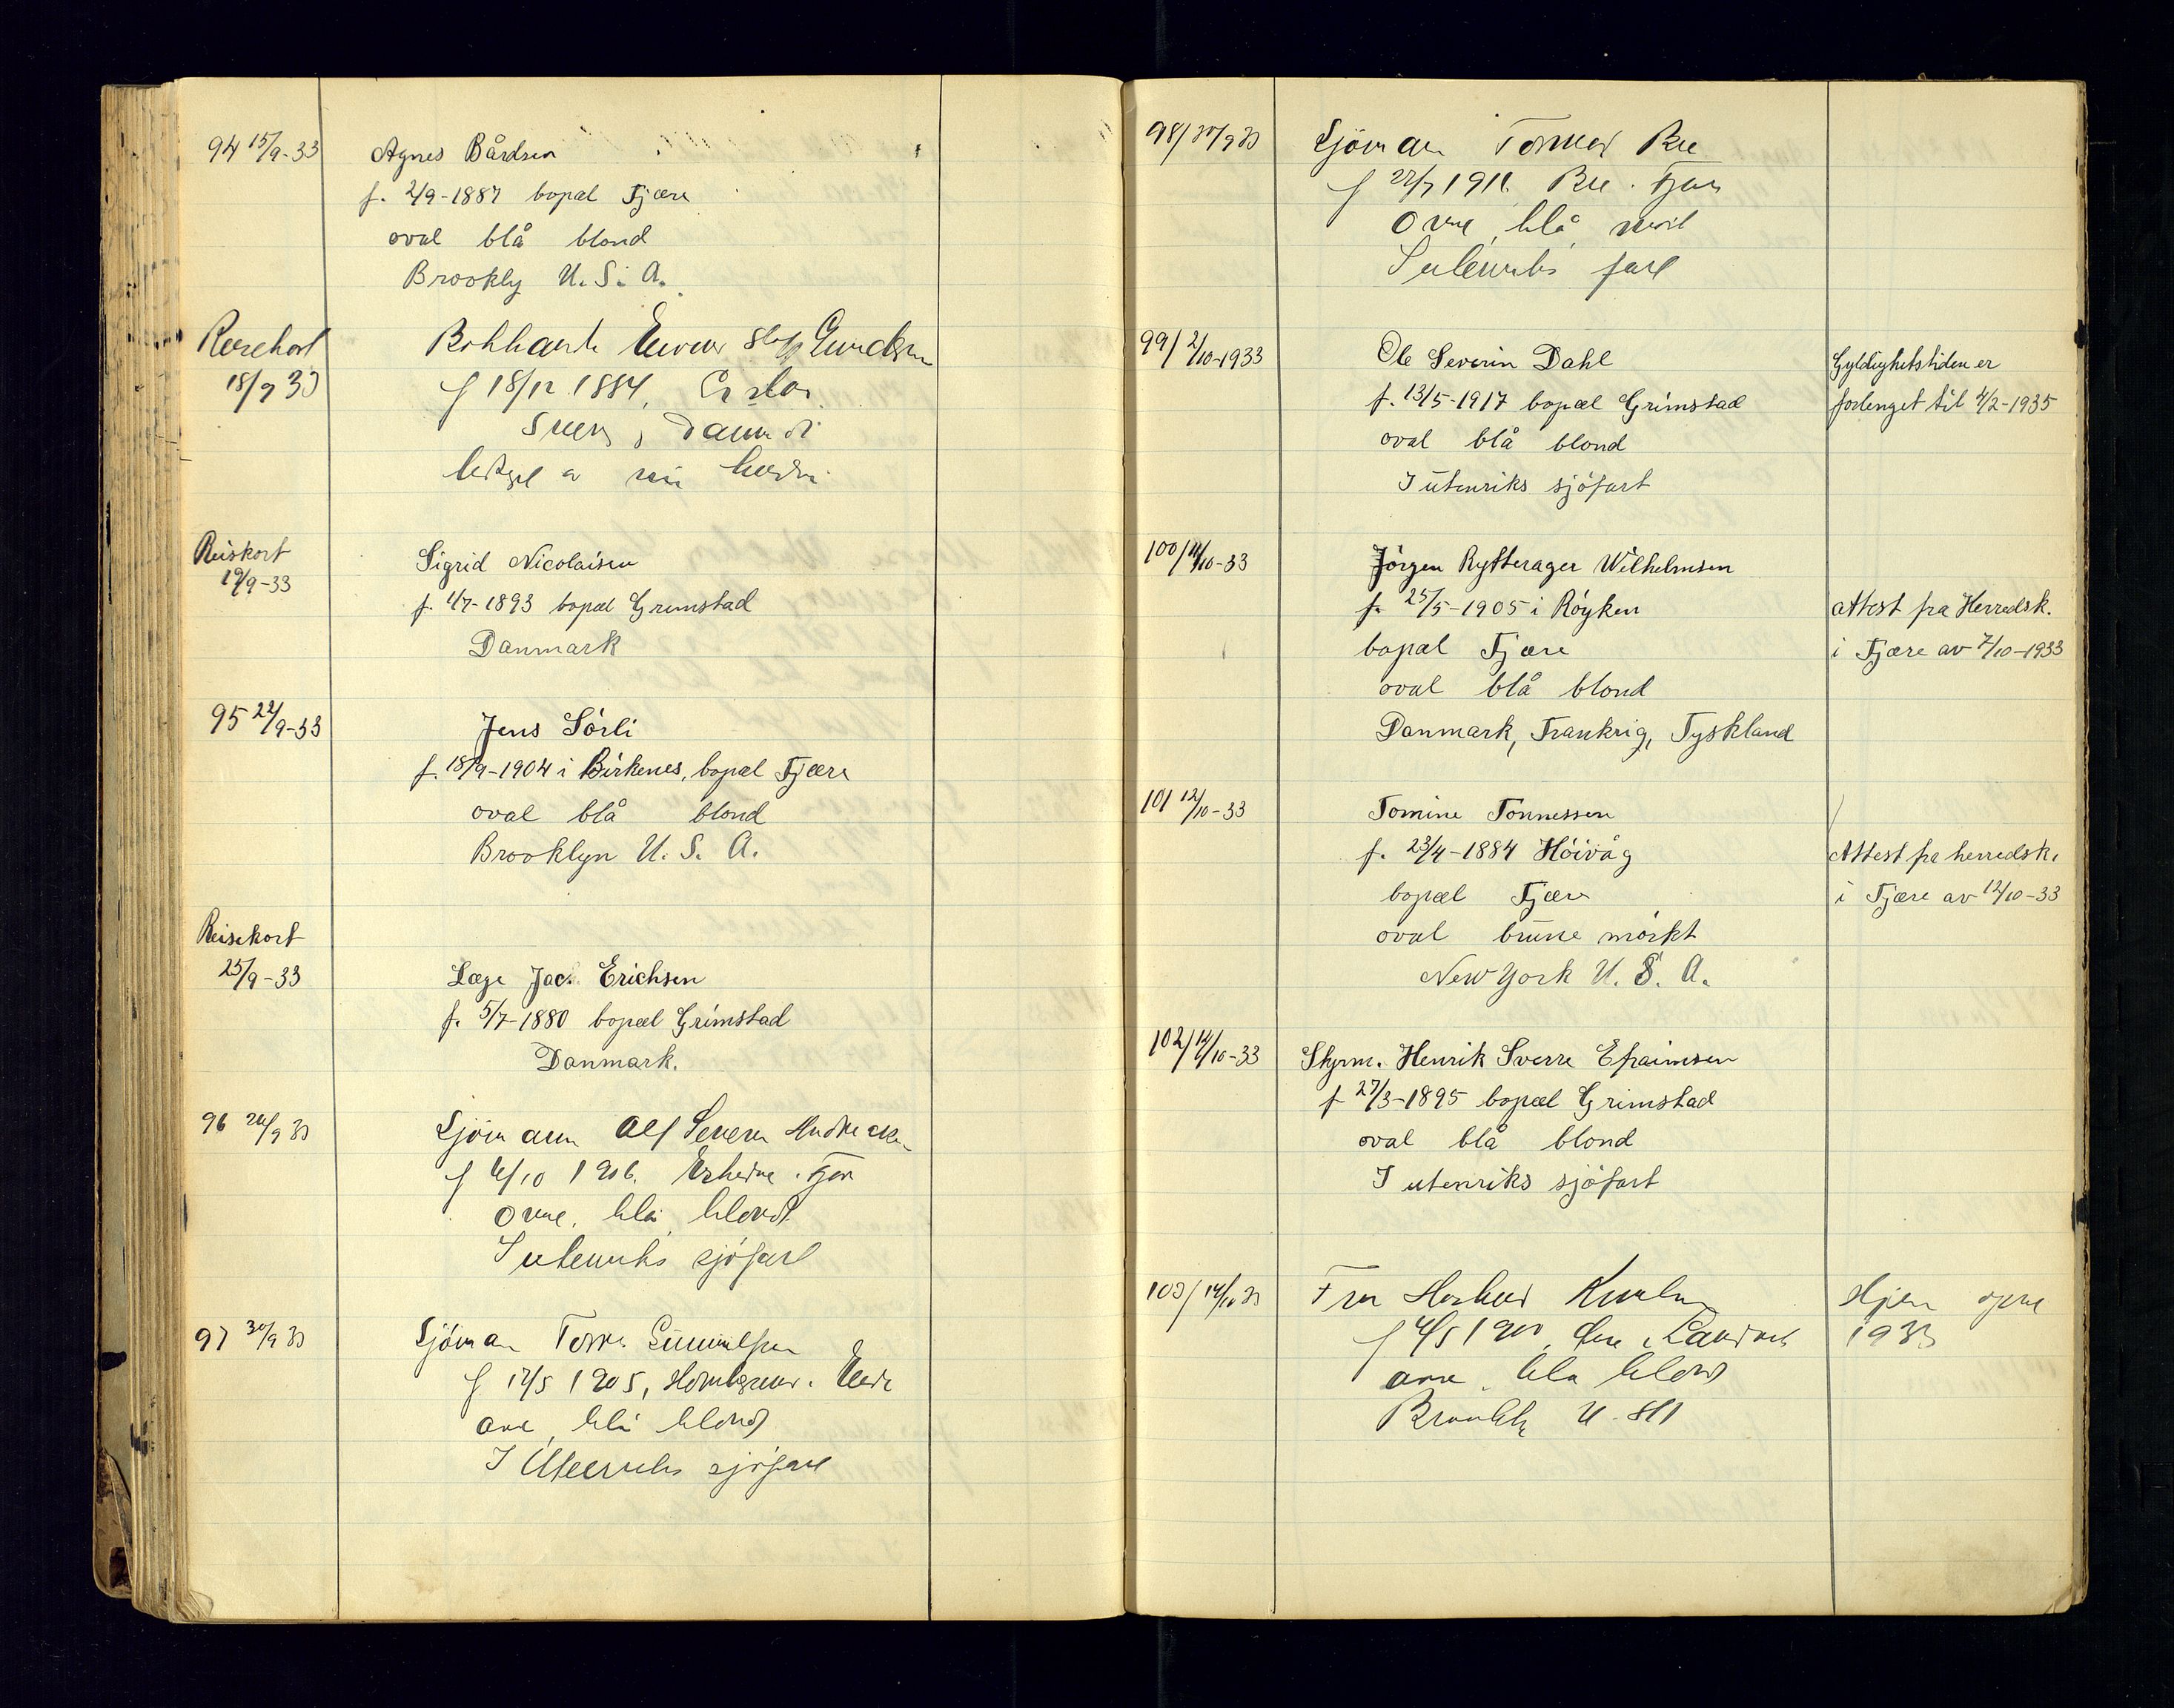 94 15/9-33
Agnes Bårdsen
f. 2/9-1887 bopæl Fjære
oval blå blond
Brookly U.S.A.
Reisekort
18/9 33
f 18/12 1884,
Reiskort
19/9-33
Sigrid Nicolaisen
f. 1/7-1893 bopæl Grimstad
Danmark
95 22/9-33
Jens Sörli
f. 18/9-1904 i Birkenes, bopæl Fjære
oval blå blond
Brooklyn U. S. A.
Reisekort
25/9-33
Læge Jac. Erichsen
f. 5/7-1880 bopæl Grimstad
Danmark.
96 26/9 33
Sjömann Alf Severin
f 6/10 1906. Fjære
Oval, blå, blond
I utenriks sjöfart
97 30/9 33
Sjöman
f 17/5 1905, Eide
oval, blå blond
I Utenriks sjöfart
98/ 30/9 33
Sjöman Tormod Bie
f 22/7 1911. Bie. Fjære
Oval, blå,
I utenriks fart
99/ 2/10-1933
Ole Severin Dahl
f. 13/5-1917 bopæl Grimstad
oval blå blond
I utenriks sjöfart
Gyldighetstiden er
forlenget til 4/2-1935
100/ 11/10-33
Jörgen Rytterager Wilhelmsen
f. 25/5-1905 i Röyken
bopæl Fjære
oval blå blond
Danmark, Frankrig, Tyskland
Attest fra Herredsk.
i Fjære av 7/10-1933
101 12/10-33
Tomine Tönnessen
f. 23/4-1884 Höivåg
bopæl Fjære
oval brune mörkt
New York U. S. A.
Attest fra herredsk.
i Fjære av 12/10-33
102/ 14/10-33
Skprm. Henrik Sverre Efraimsen
f 27/3-1895 bopæl Grimstad
oval blå blond
I utenriks sjöfart
103/ 14/10 33
Fru
f 4/5 1900, Landvik
oval, blå blond
1933